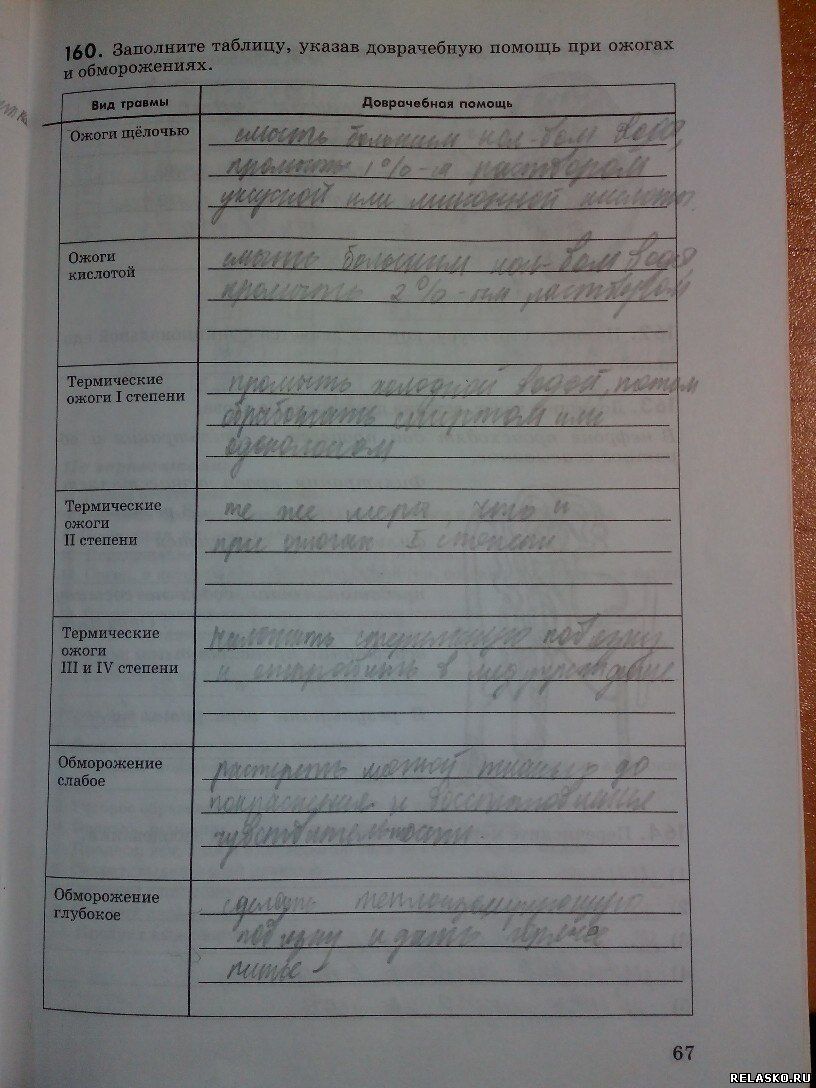 160. Заполните таблицу, указав доврачебную помощь при ожогах
и обморожениях.
Вид травмы
Доврачебная помощь
Ожоги щёлочью
смыть большим кол-вом воды,
промыть 1%-м раствором
уксусной или лимонной кислоты.
Ожоги
кислотой
смыть большим кол-вом воды,
промыть 2%-ым раствором
Термические
ожоги I степени
промыть холодной водой, потом
обработать спиртом или
одеколоном
Термические
ожоги
II степени
те же меры, что и
при ожогах I степени
Термические
ожоги
III и IV степени
наложить стерильную повязку
и отправить в
Обморожение
слабое
растереть мягкой тканью до
покраснения и
чувствительности
Обморожение
глубокое
сделать
повязку и дать горячее
питьё
67
RELASKO.RU